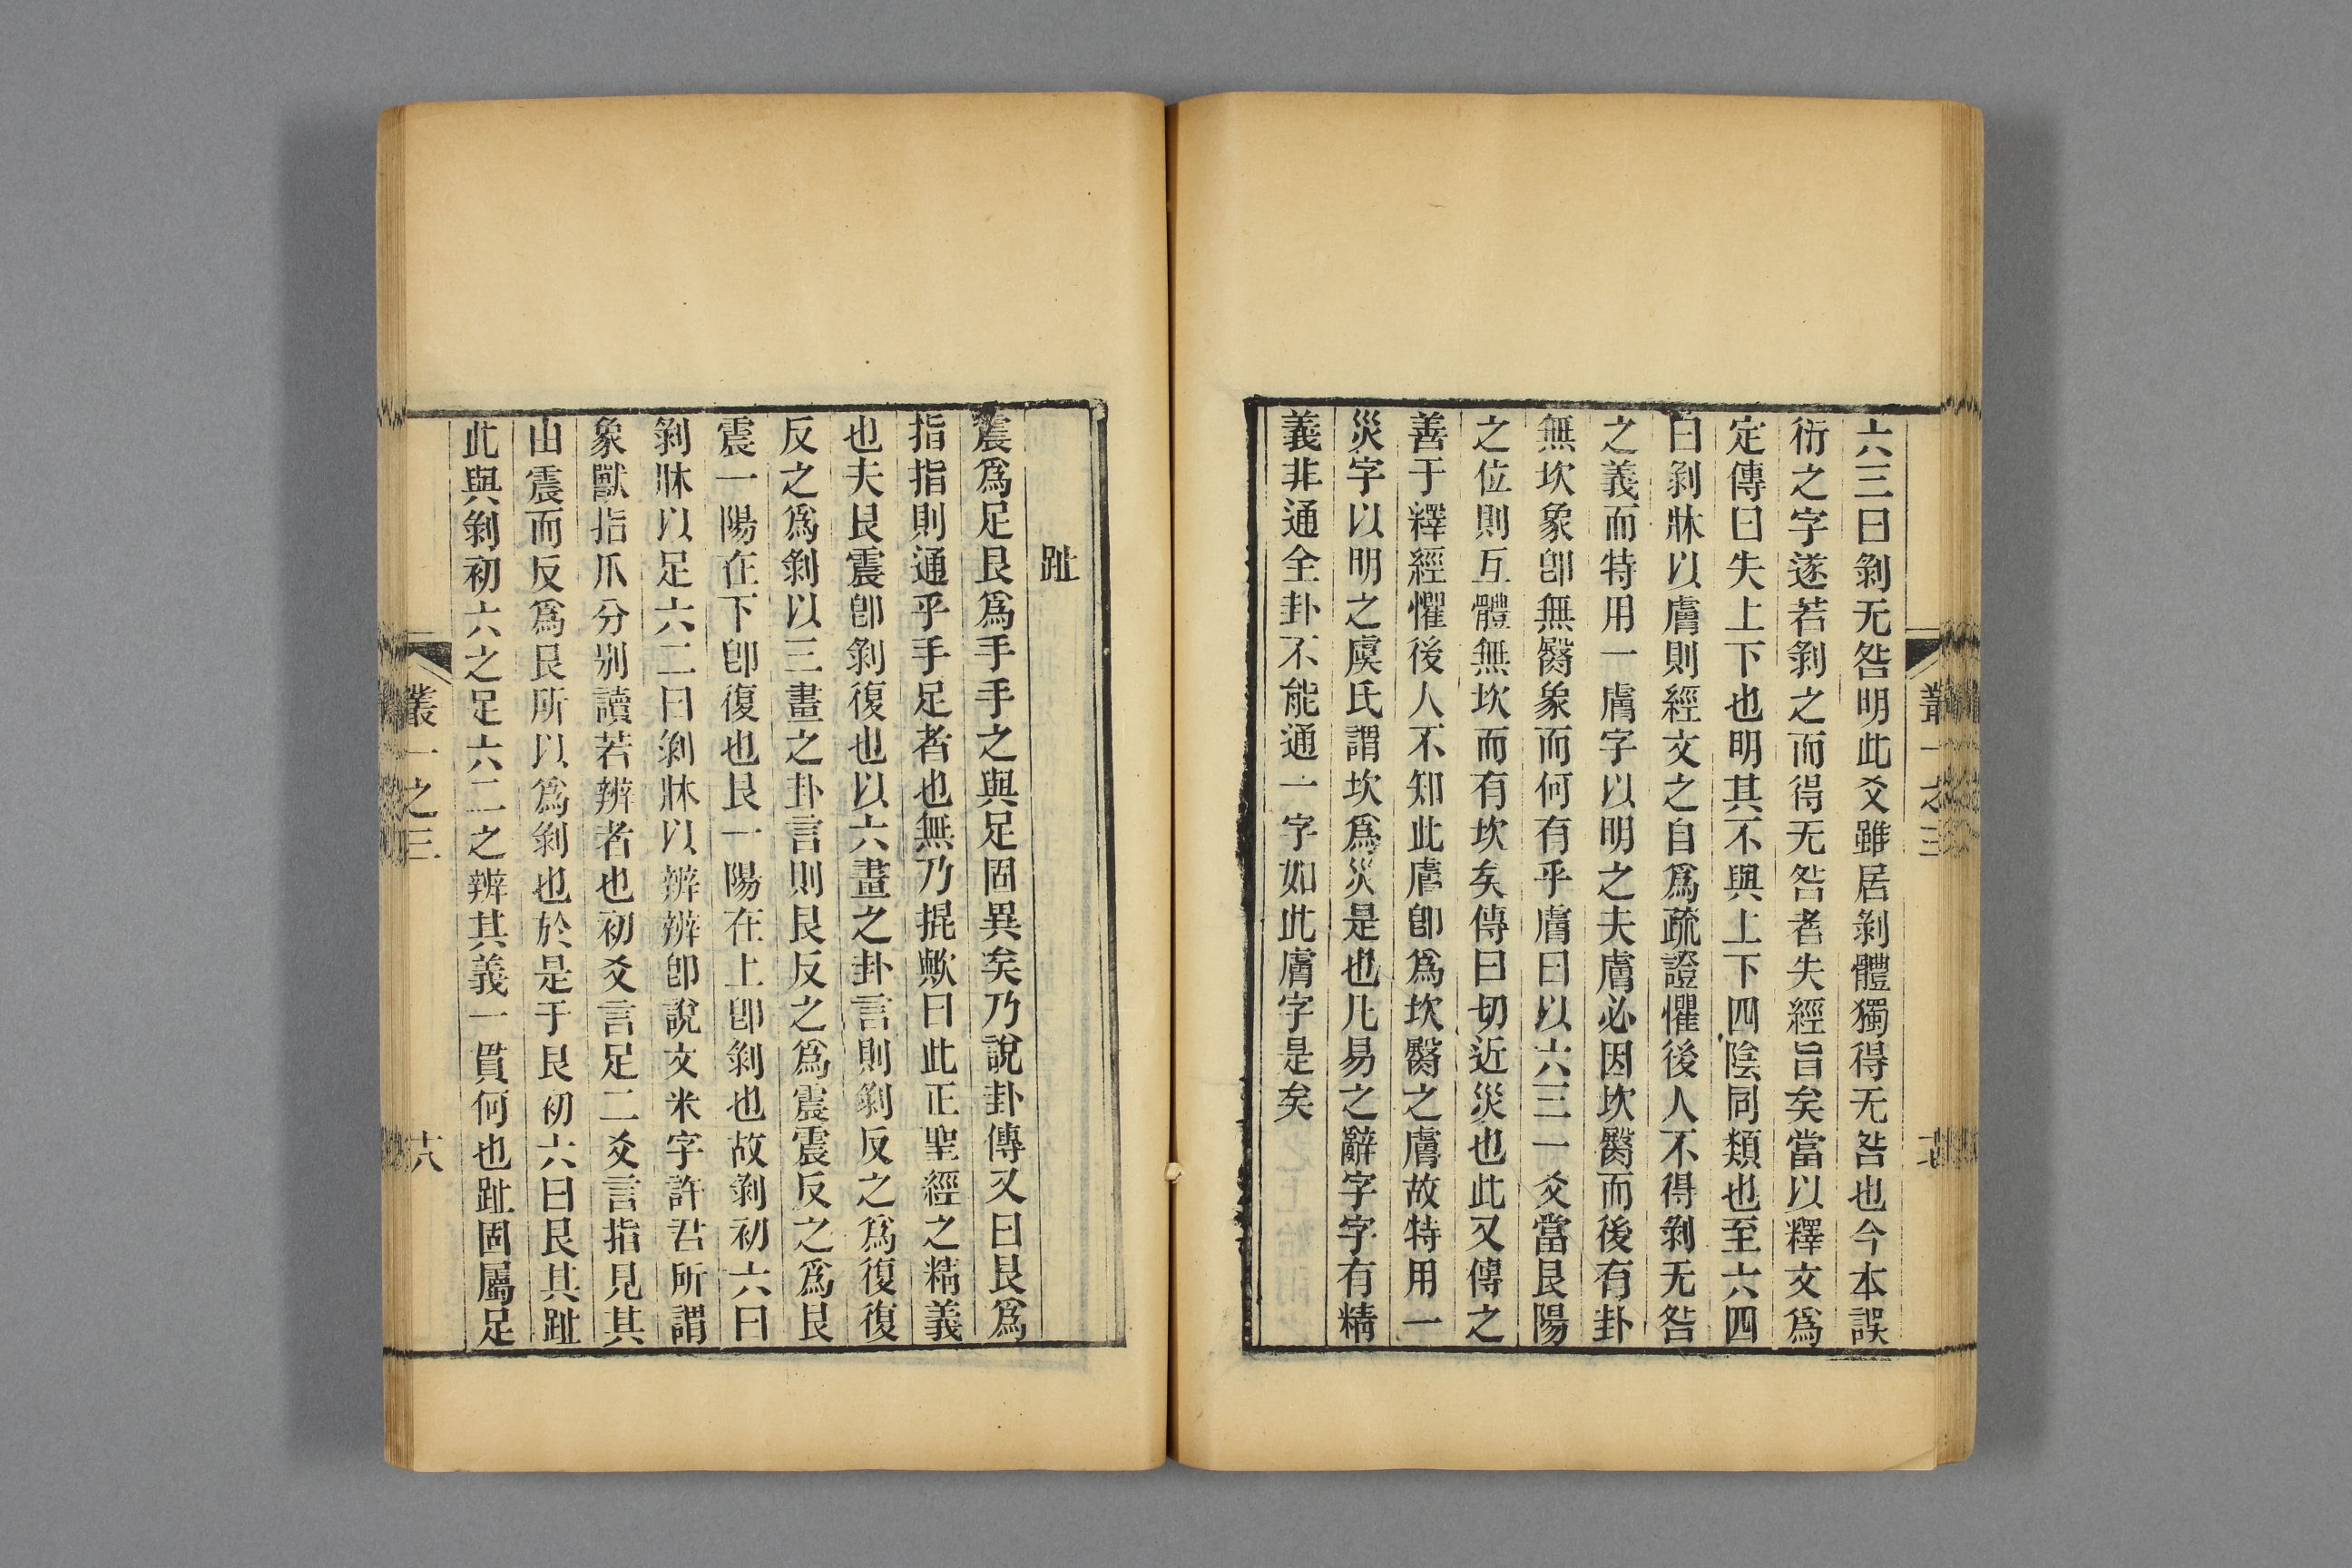 六三曰剝无咎明此爻雖居剝體獨得无咎也今本誤
衍之字遂若剝之而得无咎者失經旨矣當以釋文爲
定傳曰失上下也明其不與上下四陰同類也至六四
曰剝牀以膚則經文之自爲疏證懼後人不得剝无咎
之義而特用一膚字以明之夫膚必因坎臀而後有卦
無坎象卽無臀象而何有乎膚曰以六三一爻當艮陽
之位則互體無坎而有坎矣傳曰切近災也此又傳之
善于釋經懼後人不知此膚卽爲坎臀之膚故特用一
災字以明之虞氏謂坎爲災是也凡易之辭字字有精
義非通全卦不能通一字如此膚字是矣
叢一之三
趾
震爲足艮爲手手之與足固異矣乃說卦傳又曰艮爲
指指則通乎手足者也無乃掍歟曰此正聖經之精義
也夫艮震卽剝復也以六畫之卦言則剝反之爲復復
反之爲剝以三畫之卦言則艮反之爲震震反之爲艮
震一陽在下卽復也艮一陽在上卽剝也故剝初六曰
剝牀以足六二曰剝牀以辨辨卽說文釆字許君所謂
象獸指爪分别讀若辨者也初爻言足二爻言指見其
由震而反爲艮所以爲剝也於是于艮初六曰艮其趾
此與剝初六之足六二之辨其義一貫何也趾固屬足
叢一之三
十八